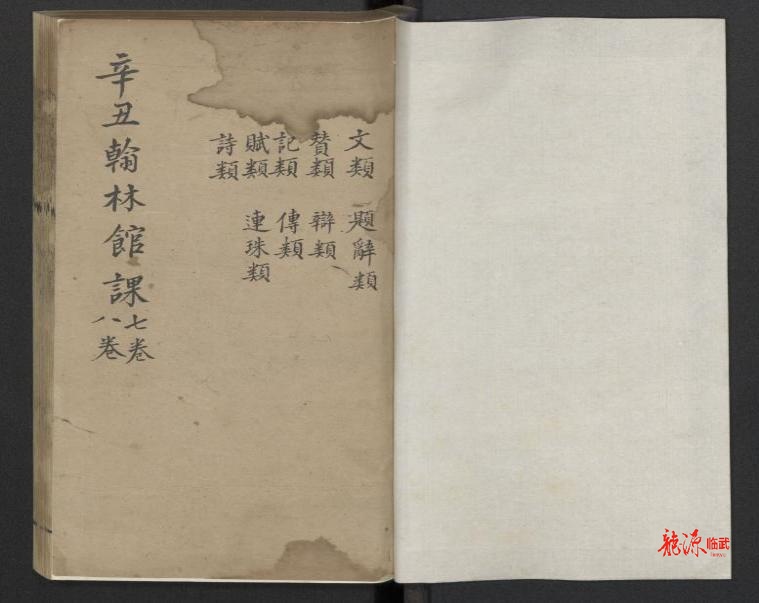 文類 題辭類
贊類 辯類
記類 傳類
賦類 連珠類
詩類
辛丑翰林館課七卷
八卷
龍源临武